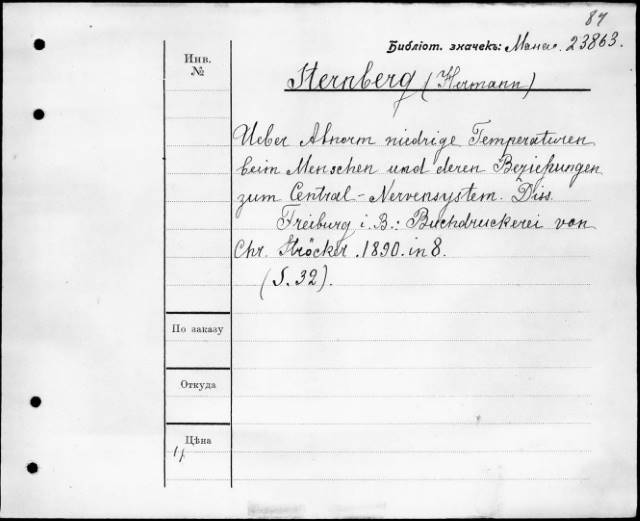 87
Библіот. значекъ: 23863.
Инв.
№
Sternberg (Hermann)
Ueber Abnorm niedrige Temperaturen
beim Menschen und deren Beziehungen
zum Central-Nervensystem. Diss.
Freiburg i. B.: Buchdruckerei von
Chr. Ströcker. 1890. in 8.
(S. 32).
По заказу
Откуда
Цѣна